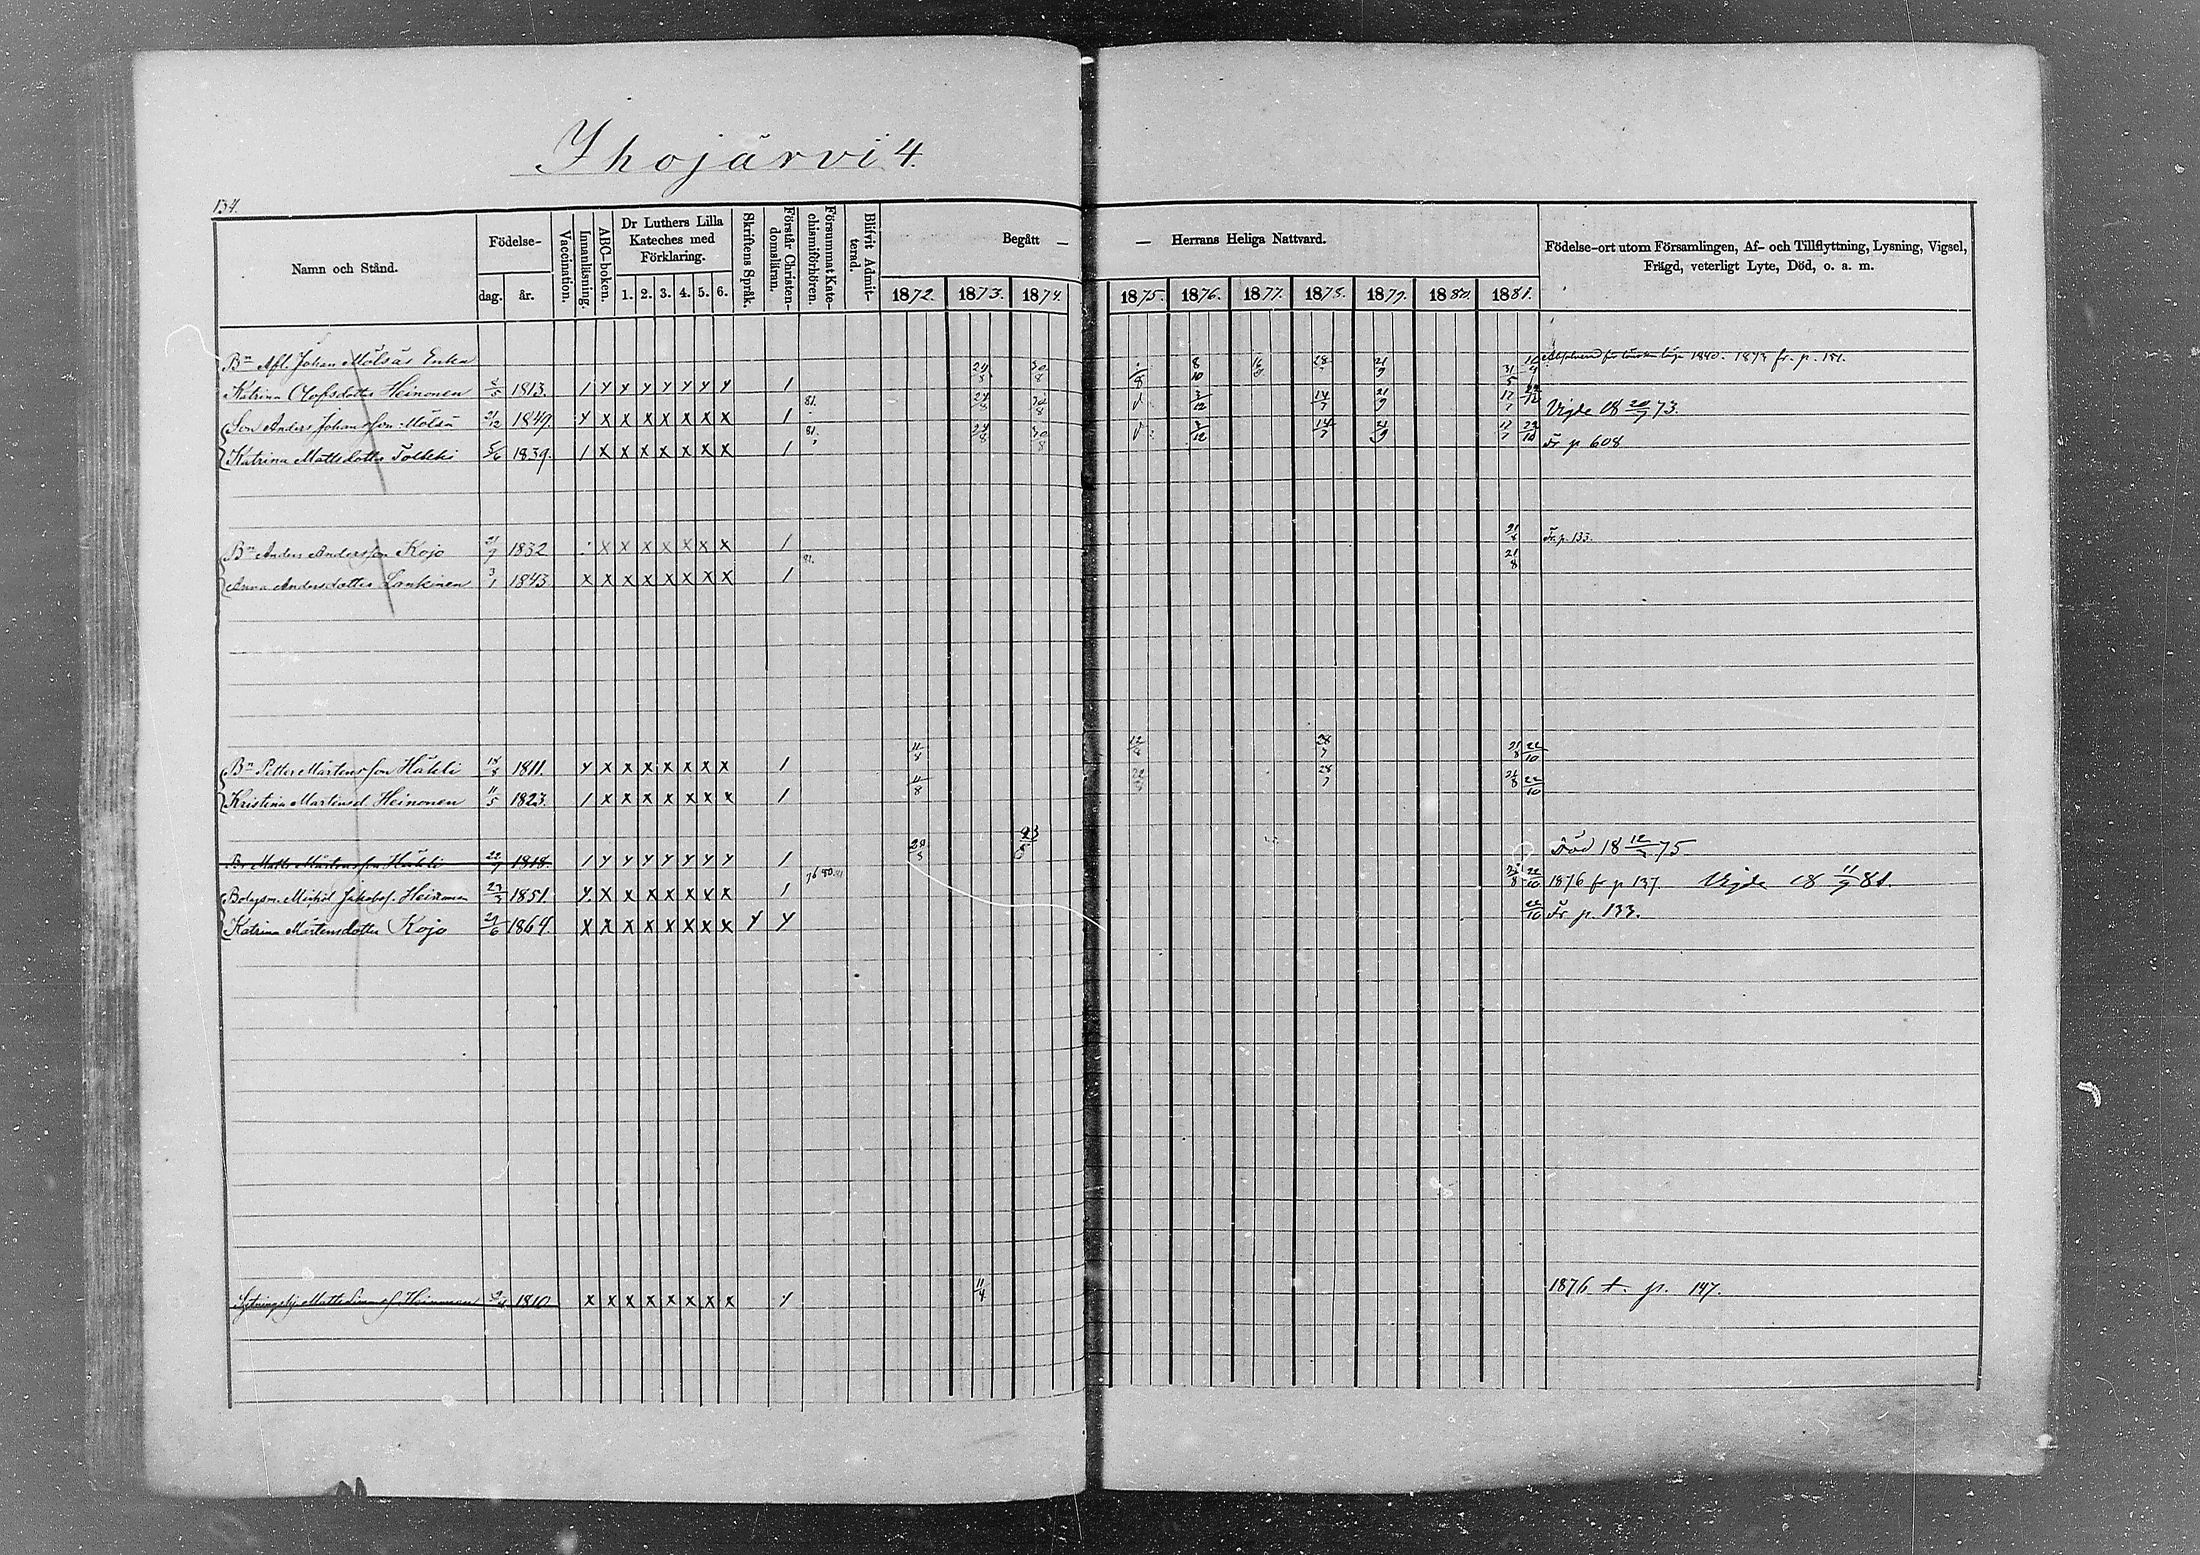 Ihojärvi 4.
134.
Namn och Stånd.
Födelse-
dag. år.
Vaccination.
Innanläsning.
ABC-boken.
Dr Luthers Lilla
Kateches med
Förklaring.
1. 2. 3. 4. 5. 6.
Skriftens Språk.
Förstår Christen-
domsläran.
Försummat Kate-
chismiförhören.
Blifvit Admit-
terad.
Begått — — Herrans Heliga Nattvard.
1872. 1873. 1874. 1875. 1876. 1877. 1878. 1879. 1880. 1881.
Födelse-ort utom Församlingen, Af- och Tillflyttning, Lysning, Vigsel,
Frägd, veterligt Lyte, Död, o. a. m.
Bn Afl. Johan Mölsäs Enka 1840. 1873 fr. p. 151.
Katrina Olofsdotter Heinonen 1813. 1 y y y y y y y 1 24/8 30/8 8/10 21/9
Son Anders Johansson Mölsä 21/12 1849. y x x x x x x x 1 81. 24/8 30/8 3/12 14/7 21/9 17/7 Vigde 18 20/7 73.
Katrina Mattsdotter 5/6 1839. 1 x x x x x x x 1 81. 24/8 30/8 3/12 14/7 21/9 17/7 23/10 Fr p 608
Bn Anders Andersson Kojo 21/7 1832 x x x x x x x 1 21/8 Fr. p. 133.
Anna Andersdotter Lankinen 3/1 1843 x x x x x x x x 1 81. 21/8
Bn Petter Mårtensson Häkli 18/8 1811. y x x x x x x x 1 11/8 12/8 28/7 21/8 22/10
Kristina Mårtensd Heinonen 11/5 1823. 1 x x x x x x x 1 11/8 28/7 21/8 22/10
Bn Matts Mårtensson Häkli 22/7 1818. 1 y y y y y y y 1 Död 18 75
Bolagsm. Mikkel Jakobss. Heinonen 1851. y x x x x x x x 1 76 80 22/10 1876 fr p 137. Vigde 18 11/9 81.
Katrina Mårtensdotter Kojo 1864. x x x x x x x x y y 22/10 Fr p. 133.
Matts Heinonen 1810 x x x x x x x x y 11/4 1876 t. p. 147.